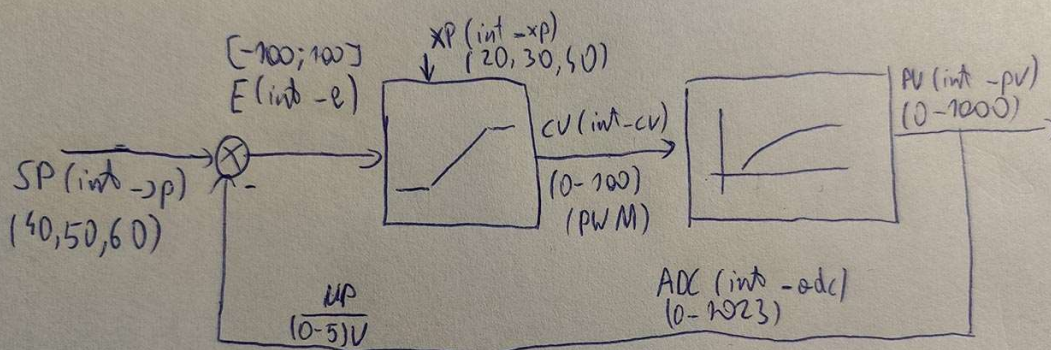 [-100;100]
E(int-e)
XP(int-xp)
(20,30,40)
SP(int->p)
(40,50,60)
-
CV(int-cv)
(0-100)
(PWM)
PV(int-pv)
(0-1000)
MP
(0-5)V
ADC(int-adc)
(0-1023)